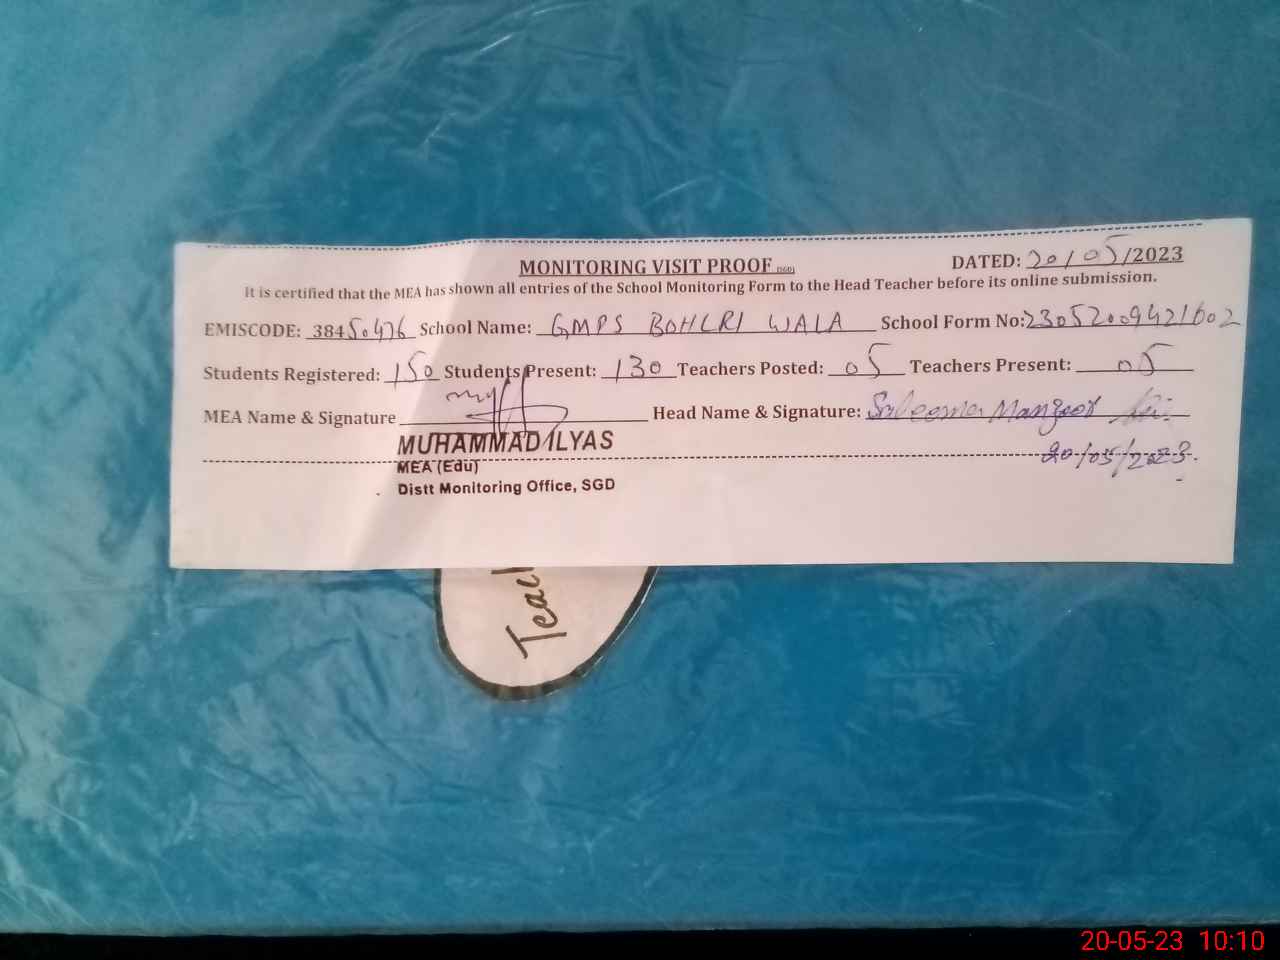 MONITORING VISIT PROOF (SGD) DATED: 20/05/2023
It is certified that the MEA has shown all entries of the School Monitoring Form to the Head Teacher before its online submission.
EMISCODE: 38450476 School Name: GMPS BOHLRI WALA School Form No: 23052009421602
Students Registered: 150 Students Present: 130 Teachers Posted: 05 Teachers Present: 05
MEA Name & Signature Head Name & Signature: Saleema Manzoor
MUHAMMAD ILYAS
20/05/2023.
MEA (Edu)
Distt Monitoring Office, SGD
Teach
20-05-23 10:10